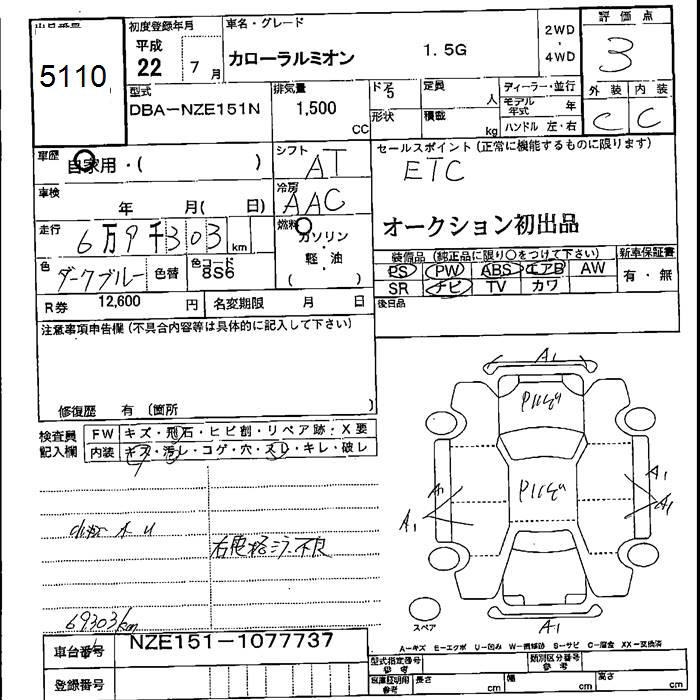 出品番号
5110
初度登録年月
平成
22 7 月
車名・グレード
カローラルミオン 1.5G
2WD
・
4WD
評価点
3
外装 内装
C C
型式
DBA-NZE151N
排気量
1,500
CC
ドア
5
形状
定員
人
積載
kg
ディーラー・並行
モデル年式 年
ハンドル 左・右
車歴
自家用・( )
シフト
AT
車検
年 月( 日)
冷房
AAC
走行
6万9千303 km
燃料
ガソリン
軽・油
( )
色
ダークブルー
色替
色コード
8S6
R券 12,600 円
名変期限 月 日
セールスポイント (正常に機能するものに限ります)
ETC
オークション初出品
装備品 (純正品に限り○をつけて下さい)
新車保証書
PS PW ABS エアB AW
SR ナビ TV カワ
有・無
後日品
注意事項申告欄 (不具合内容等は具体的に記入して下さい)
修復歴 有 (箇所 )
検査員
記入欄
FW キズ・飛石・ヒビ割・リペア跡・X要
内装 キズ・汚レ・コゲ・穴・スレ・キレ・破レ
69303/km
A1
A1
A1
A1
A1
A1
A1
スペア
A-キズ E-エクボ U-凹み W-補修跡 S-サビ C-腐食 XX-交換済
車台番号
NZE151-1077737
登録番号
型式指定番号
参考
類別区分番号
参考
車庫証明用
参考
長さ cm
幅 cm
高さ cm